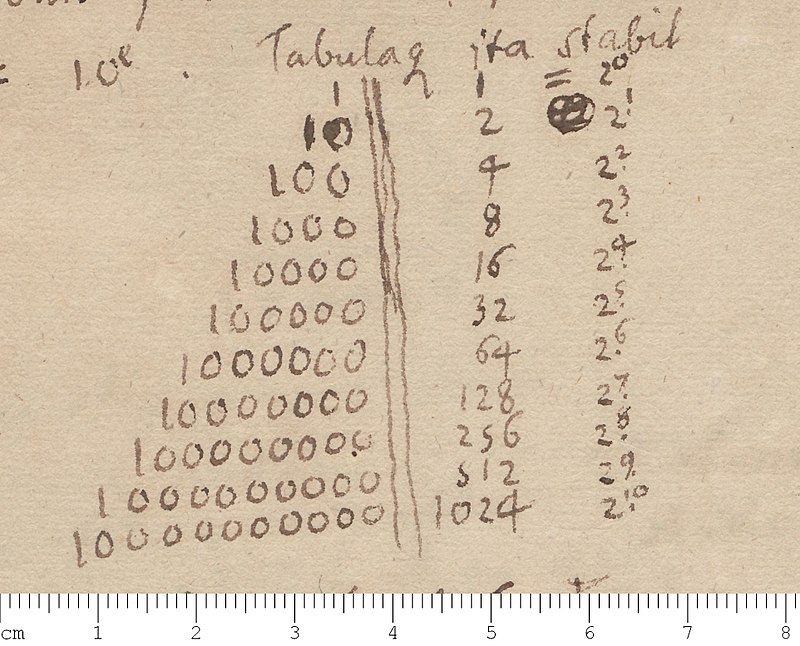 = 10^e . Tabulaq ita stabit
1 || 1 = 2^0
10 || 2 2^1
100 || 4 2^2
1000 || 8 2^3
10000 || 16 2^4
100000 || 32 2^5
1000000 || 64 2^6
10000000 || 128 2^7
100000000 || 256 2^8
1000000000 || 512 2^9
10000000000 || 1024 2^10
cm 1 2 3 4 5 6 7 8